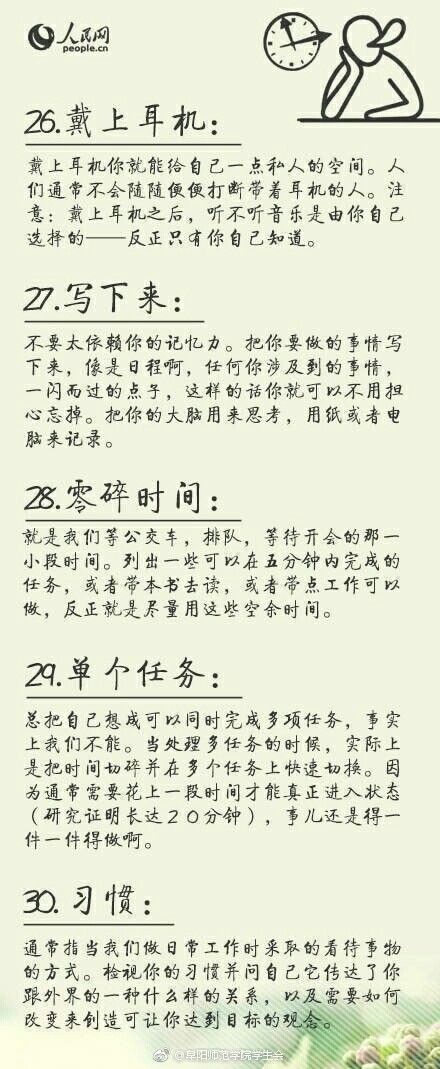 人民网
people.cn
26.戴上耳机：
戴上耳机你就能给自己一点私人的空间。人
们通常不会随随便便打断带着耳机的人。注
意：戴上耳机之后，听不听音乐是由你自己
选择的——反正只有你自己知道。
27.写下来：
不要太依赖你的记忆力。把你要做的事情写
下来，像是日程啊，任何你涉及到的事情，
一闪而过的点子，这样的话你就可以不用担
心忘掉。把你的大脑用来思考，用纸或者电
脑来记录。
28.零碎时间：
就是我们等公交车，排队，等待开会的那一
小段时间。列出一些可以在五分钟内完成的
任务，或者带本书去读，或者带点工作可以
做，反正就是尽量用这些空余时间。
29.单个任务：
总把自己想成可以同时完成多项任务，事实
上我们不能。当处理多任务的时候，实际上
是把时间切碎并在多个任务上快速切换。因
为通常需要花上一段时间才能真正进入状态
（研究证明长达２０分钟），事儿还是得一
件一件得做啊。
30.习惯：
通常指当我们做日常工作时采取的看待事物
的方式。检视你的习惯并问自己它传达了你
跟外界的一种什么样的关系，以及需要如何
改变来创造可让你达到目标的观念。
@阜阳师范学院学生会